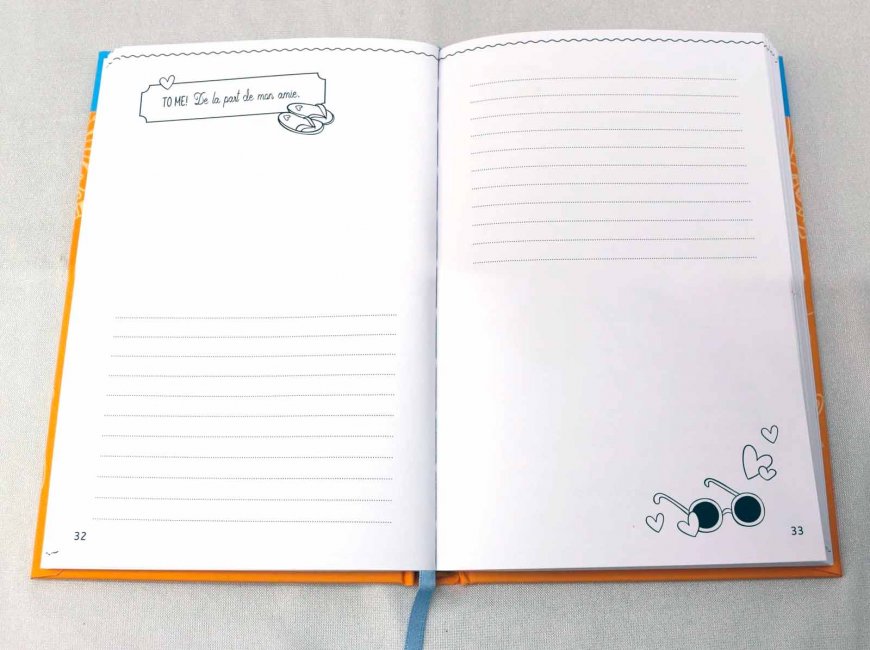 TO ME! De la part de mon amie.
32
33